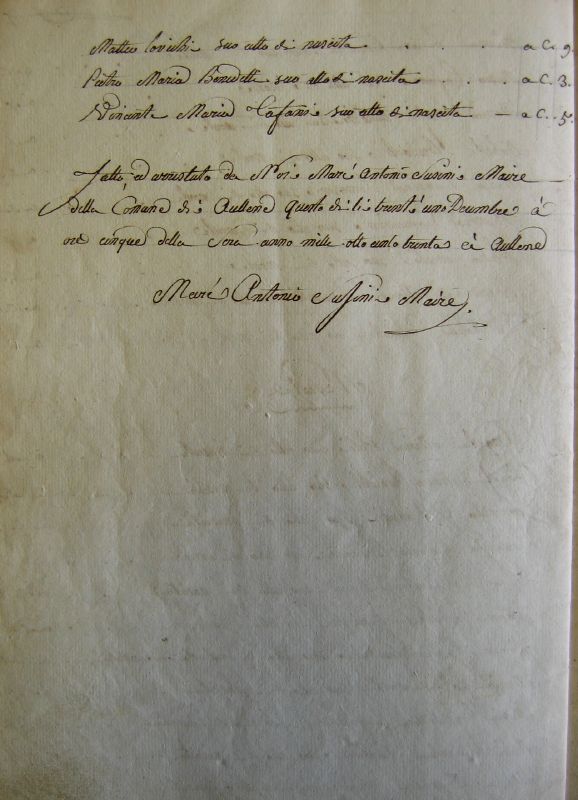 Matteo suo atto di nascita . . . . a C. 9.
Pietro Maria Benedetti suo atto di nascita . . . a C. 3.
Vincente Maria Cafani suo atto di nascita — a C. 5.
Fatto ed arrestato da Noi Marc' Antonio Susini Maire
della Comune di Aullene questo di li trent'uno Decembre à
ore cinque della sera anno mille otto cento trenta à Aullene
Marc' Antonio Susini Maire